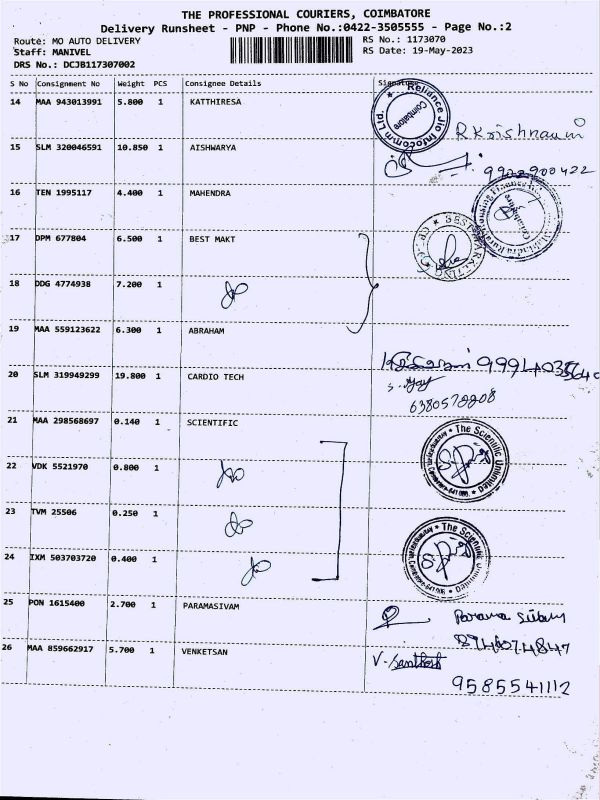 THE PROFESSIONAL COURIERS, COIMBATORE
Delivery Runsheet - PNP - Phone No.:0422-3505555 - Page No.:2
Route: MO AUTO DELIVERY RS No.: 1173070
Staff: MANIVEL RS Date: 19-May-2023
DRS No.: DCJB117307002
S No Consignment No Weight PCS Consignee Details Signature
14 MAA 943013991 5.800 1 KATTHIRESA
Reliance Jio Infocomm Ltd. Coimbatore
R Krishnaveni
15 SLM 320046591 10.850 1 AISHWARYA
9902900422
16 TEN 1995117 4.400 1 MAHENDRA
Coimbatore
17 DPM 677804 6.500 1 BEST MAKT
18 DDG 4774938 7.200 1 do
19 MAA 559123622 6.300 1 ABRAHAM
20 SLM 319949299 19.800 1 CARDIO TECH
6380572808
21 MAA 298568697 0.140 1 SCIENTIFIC
The Scientific Unlimited
22 VDK 5521970 0.800 1 do
23 TVM 25506 0.250 1 do
The Scientific Unlimited
24 IXM 503703720 0.400 1 do
25 PON 1615400 2.700 1 PARAMASIVAM
26 MAA 859662917 5.700 1 VENKETSAN
V. Santhosh
9585541112